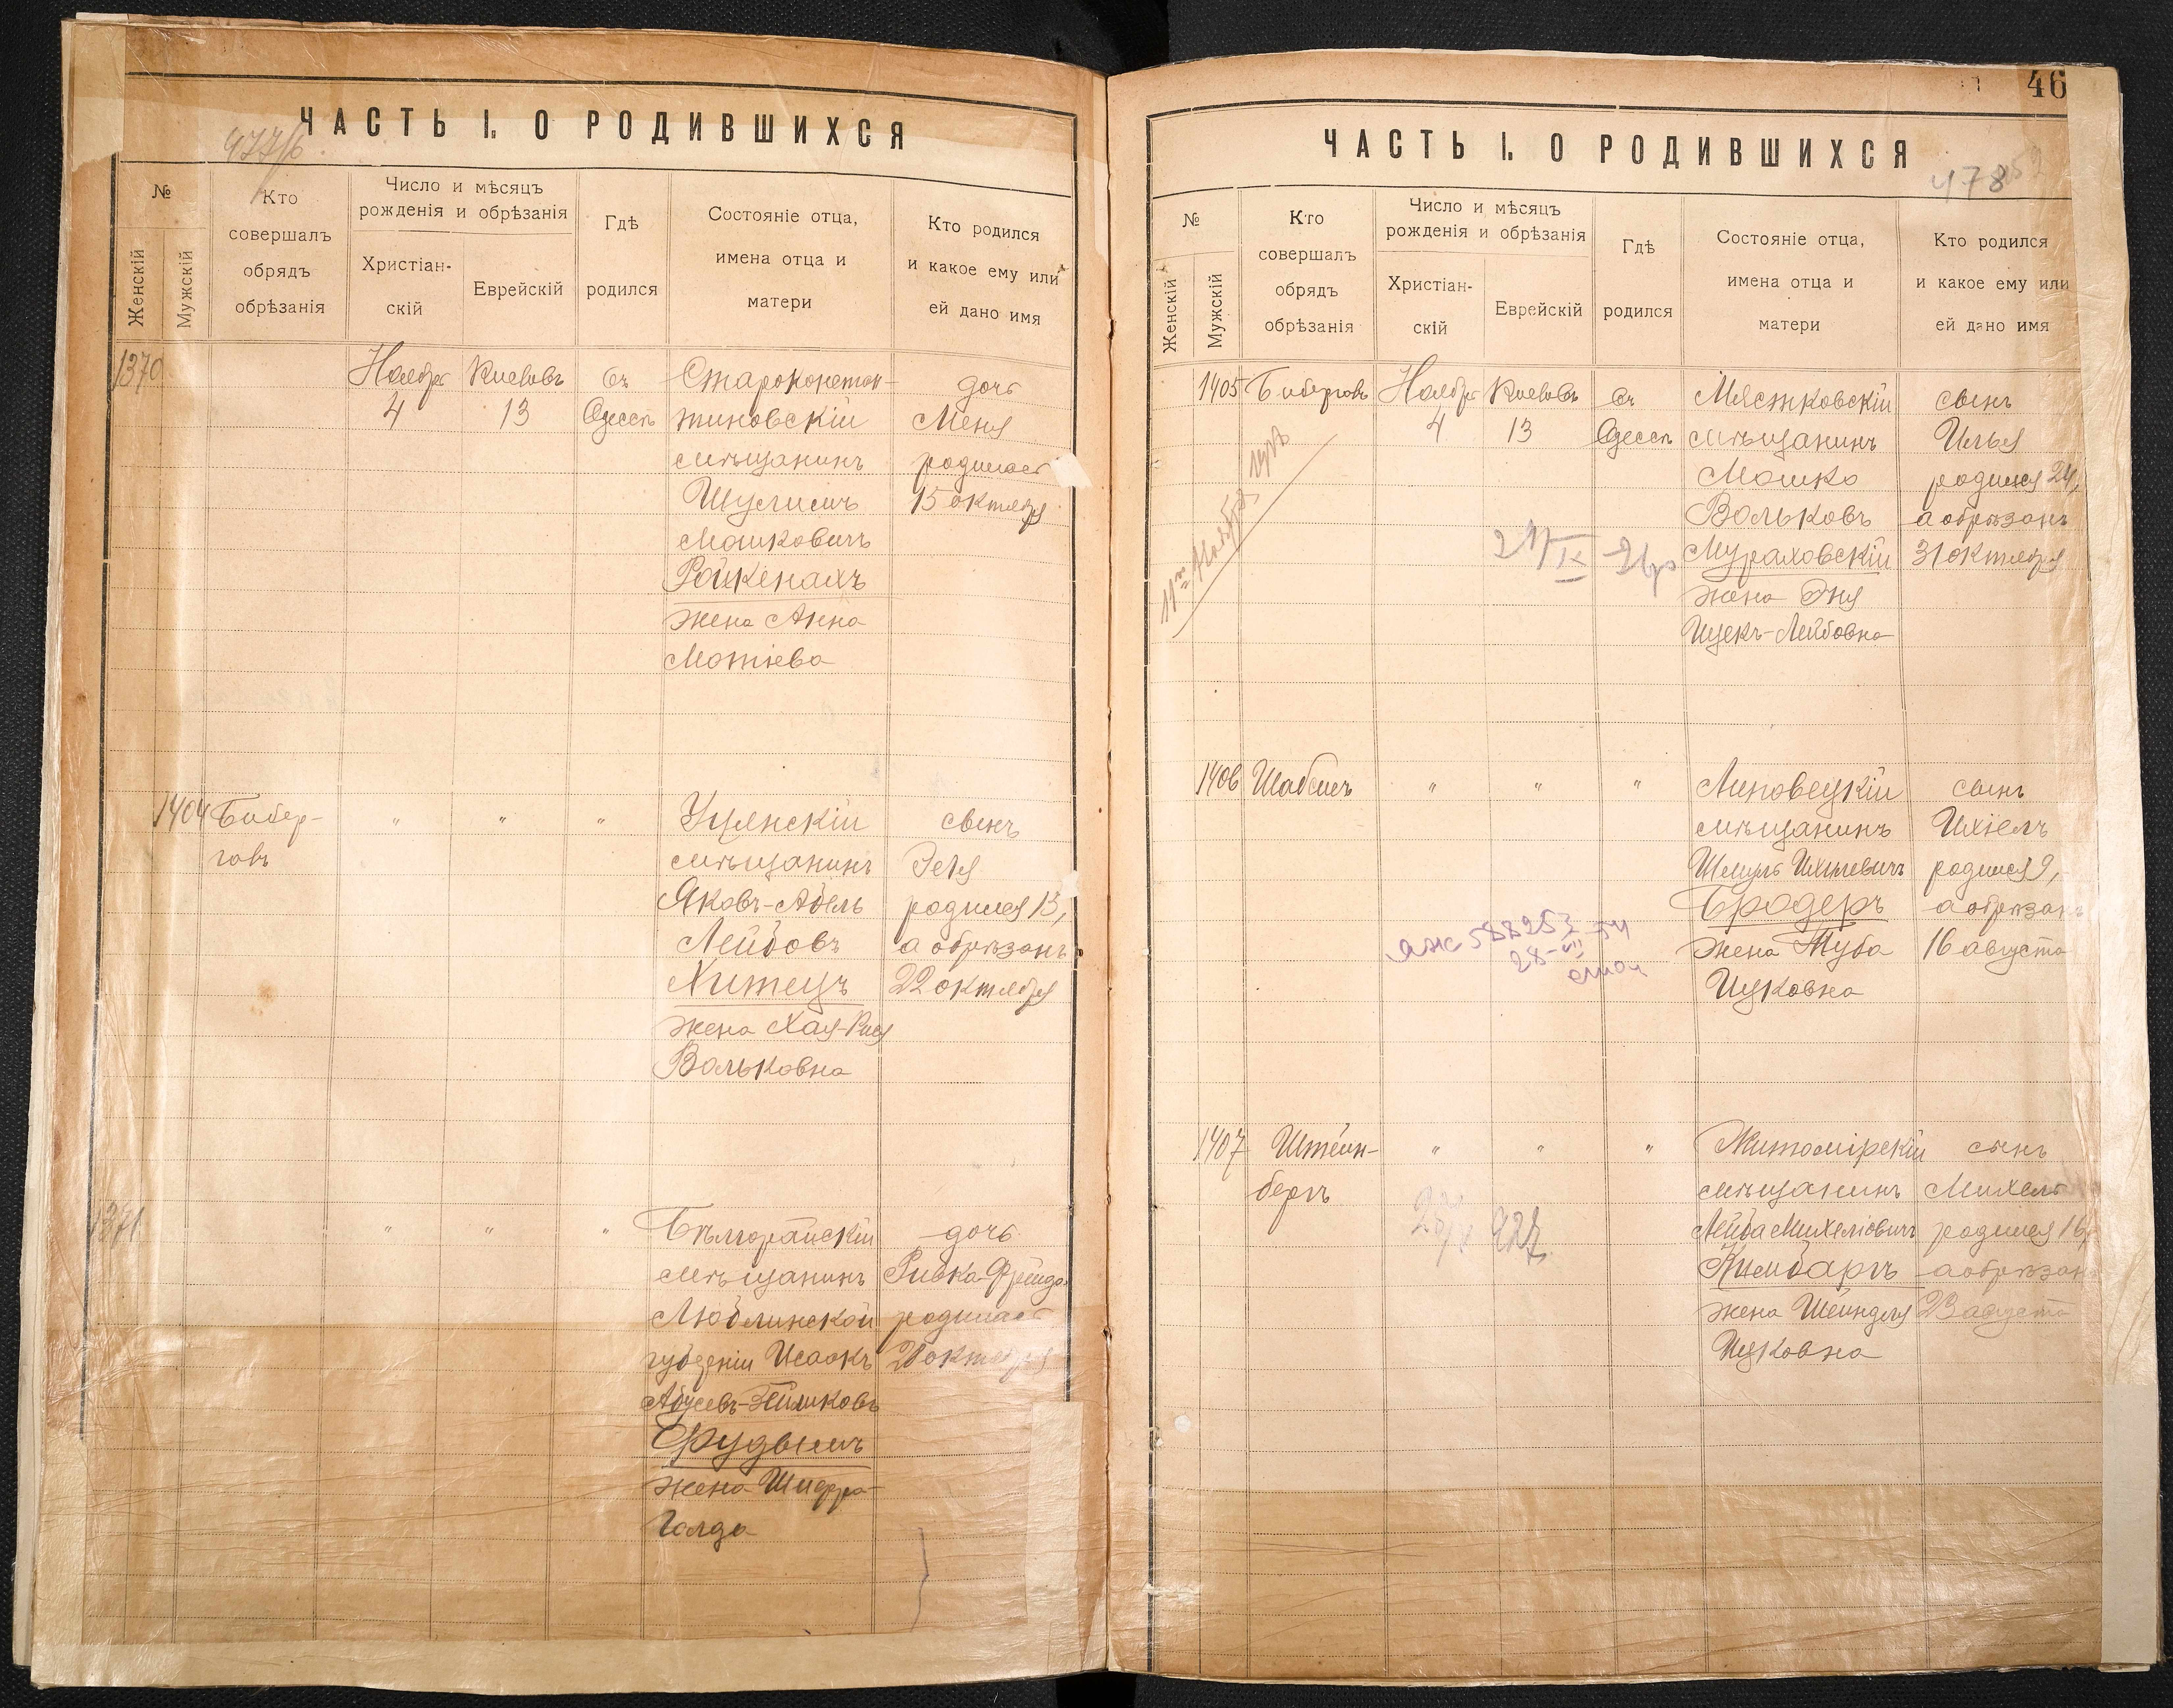 ЧАСТЬ I. О РОДИВШИХСЯ
477/б
№
Женскій
Мужскій
Кто
совершалъ
обрядъ
обрѣзанія
Число и мѣсяцъ
рожденія и обрѣзанія
Христіан-
скій
Еврейскій
Гдѣ
родился
Состояніе отца,
имена отца и
матери
Кто родился
и какое ему или
ей дано имя
1370
Ноября
4
Кислевъ
13
въ
Одессѣ
Староконстан-
тиновскій
мѣщанинъ
Шулимъ
Мошковичъ
Ройкенахъ
жена Анна
Мотіева
дочь
Меня
родилась
15 октября
1404
Бибер-
галъ
"
"
"
мѣщанинъ
Яковъ-Абель
Лейбовъ
Житецъ
жена Хая-Рися
Вольковна
сынъ
родился 13,
а обрѣзанъ
22 октября
1371
"
"
"
Бѣлгорайскій
мѣщанинъ
Люблинской
губерніи Исаакъ
жена Шифра-
Голда
дочь
Ривка-Фрейда
родилась
октября
46
ЧАСТЬ I. О РОДИВШИХСЯ
478
№
Женскій
Мужскій
Кто
совершалъ
обрядъ
обрѣзанія
Число и мѣсяцъ
рожденія и обрѣзанія
Христіан-
скій
Еврейскій
Гдѣ
родился
Состояніе отца,
имена отца и
матери
Кто родился
и какое ему или
ей дано имя
1405
Бибергалъ
Ноября
4
Кислевъ
13
въ
Одессѣ
Мястковскій
мѣщанинъ
Мошко
Вольковъ
Мураховскій
жена Эня
Ицекъ-Лейбовна
сынъ
Илья
родился 24,
а обрѣзанъ
31 октября
1406
Шабсисъ
"
"
"
Липовецкій
мѣщанинъ
Шмуль Ихилевичъ
Бродеръ
жена Туба
Ицковна
сынъ
Ихіелъ
родился 9,
а обрѣзанъ
16 августа
588253
1407
Штейн-
бергъ
"
"
"
Житомірскій
мѣщанинъ
Лейба Михеліовичъ
жена Шейндля
Ицковна
сынъ
Михель
родился 16,
а обрѣзанъ
23 августа